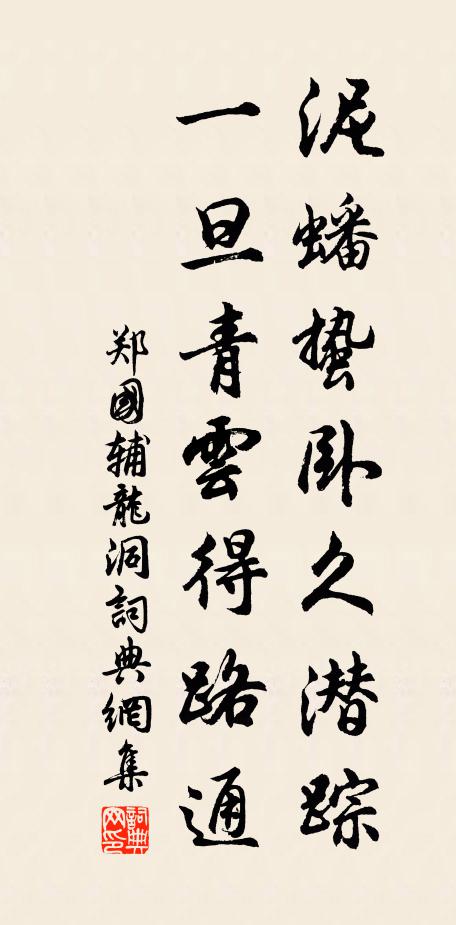 泥蟠蛰卧久潜踪
一旦青雲得路通
郑國辅龍洞詞典網集
詞典网印